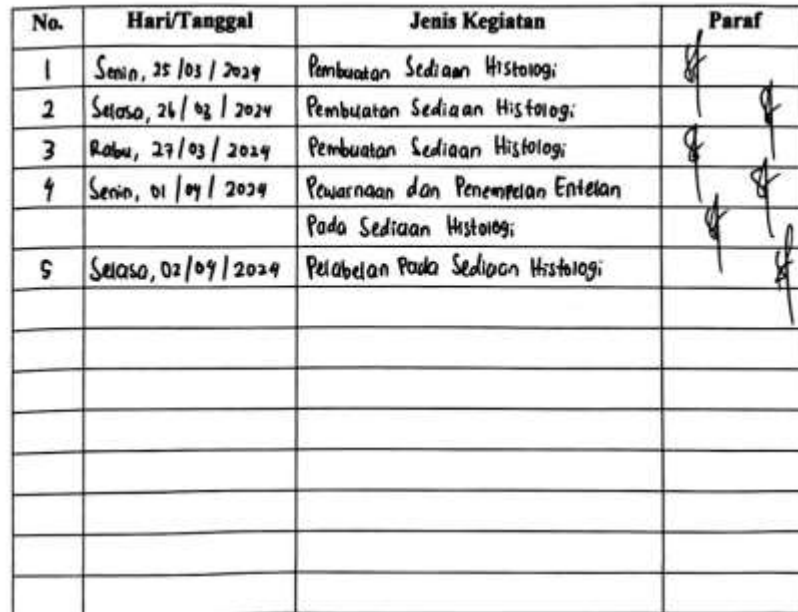 No. Hari/Tanggal Jenis Kegiatan Paraf
1 Senin, 25/03/2024 Pembuatan Sediaan Histologi
2 Selasa, 26/03/2024 Pembuatan Sediaan Histologi
3 Rabu, 27/03/2024 Pembuatan Sediaan Histologi
4 Senin, 01/04/2024 Pewarnaan dan Penempelan Entelan
Pada Sediaan Histologi
5 Selasa, 02/04/2024 Pelabelan Pada Sediaan Histologi